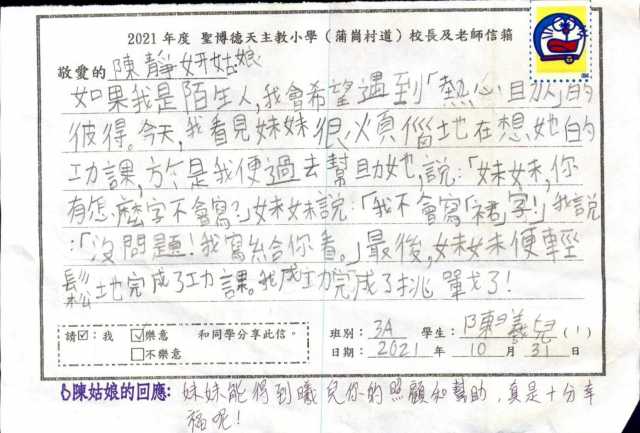 2021年度 聖博德天主教小學（蒲崗村道）校長及老師信箱
敬愛的 陳靜妍姑娘
如果我是陌生人，我會希望遇到「熱心助人」的
彼得。今天，我看見妹妹很煩惱地在想她的
功課，於是我便過去幫助她，說：「妹妹，你
有怎麼字不會寫？」妹妹說：「我不會寫「裙」字！」我說
：「沒問題！我寫給你看。」最後，妹妹便輕
鬆地完成了功課。我成功完成了挑戰了！
請☑：我 ☑樂意 和同學分享此信。 班別： 3A 學生： 陳曦兒 (1)
□不樂意 日期： 2021 年 10 月 31 日
陳姑娘的回應： 妹妹能得到曦兒你的照顧和幫助，真是十分幸
福呢！